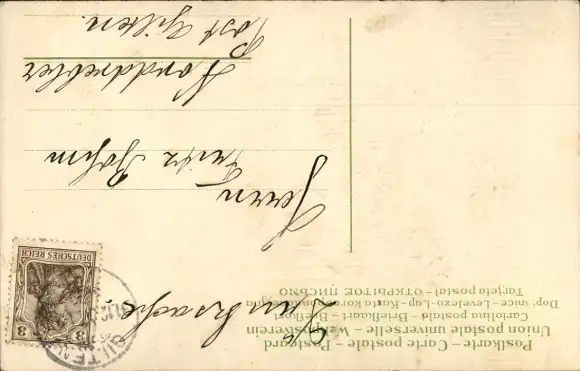 Postkarte – Carte postale – Postcard
Union postale universelle – Weltpostverein
Cartolina postale – Briefkort – Briefkaart
Dop: snice – Levelező-Lap – Korta korespondencyjna
Tarjeta postal – ОТКРЫТОЕ ПИСЬМО
Drucksache
3 3
DEUTSCHES REICH
Herrn
Fritz Böhm
Norddrebber
Post Gilten.